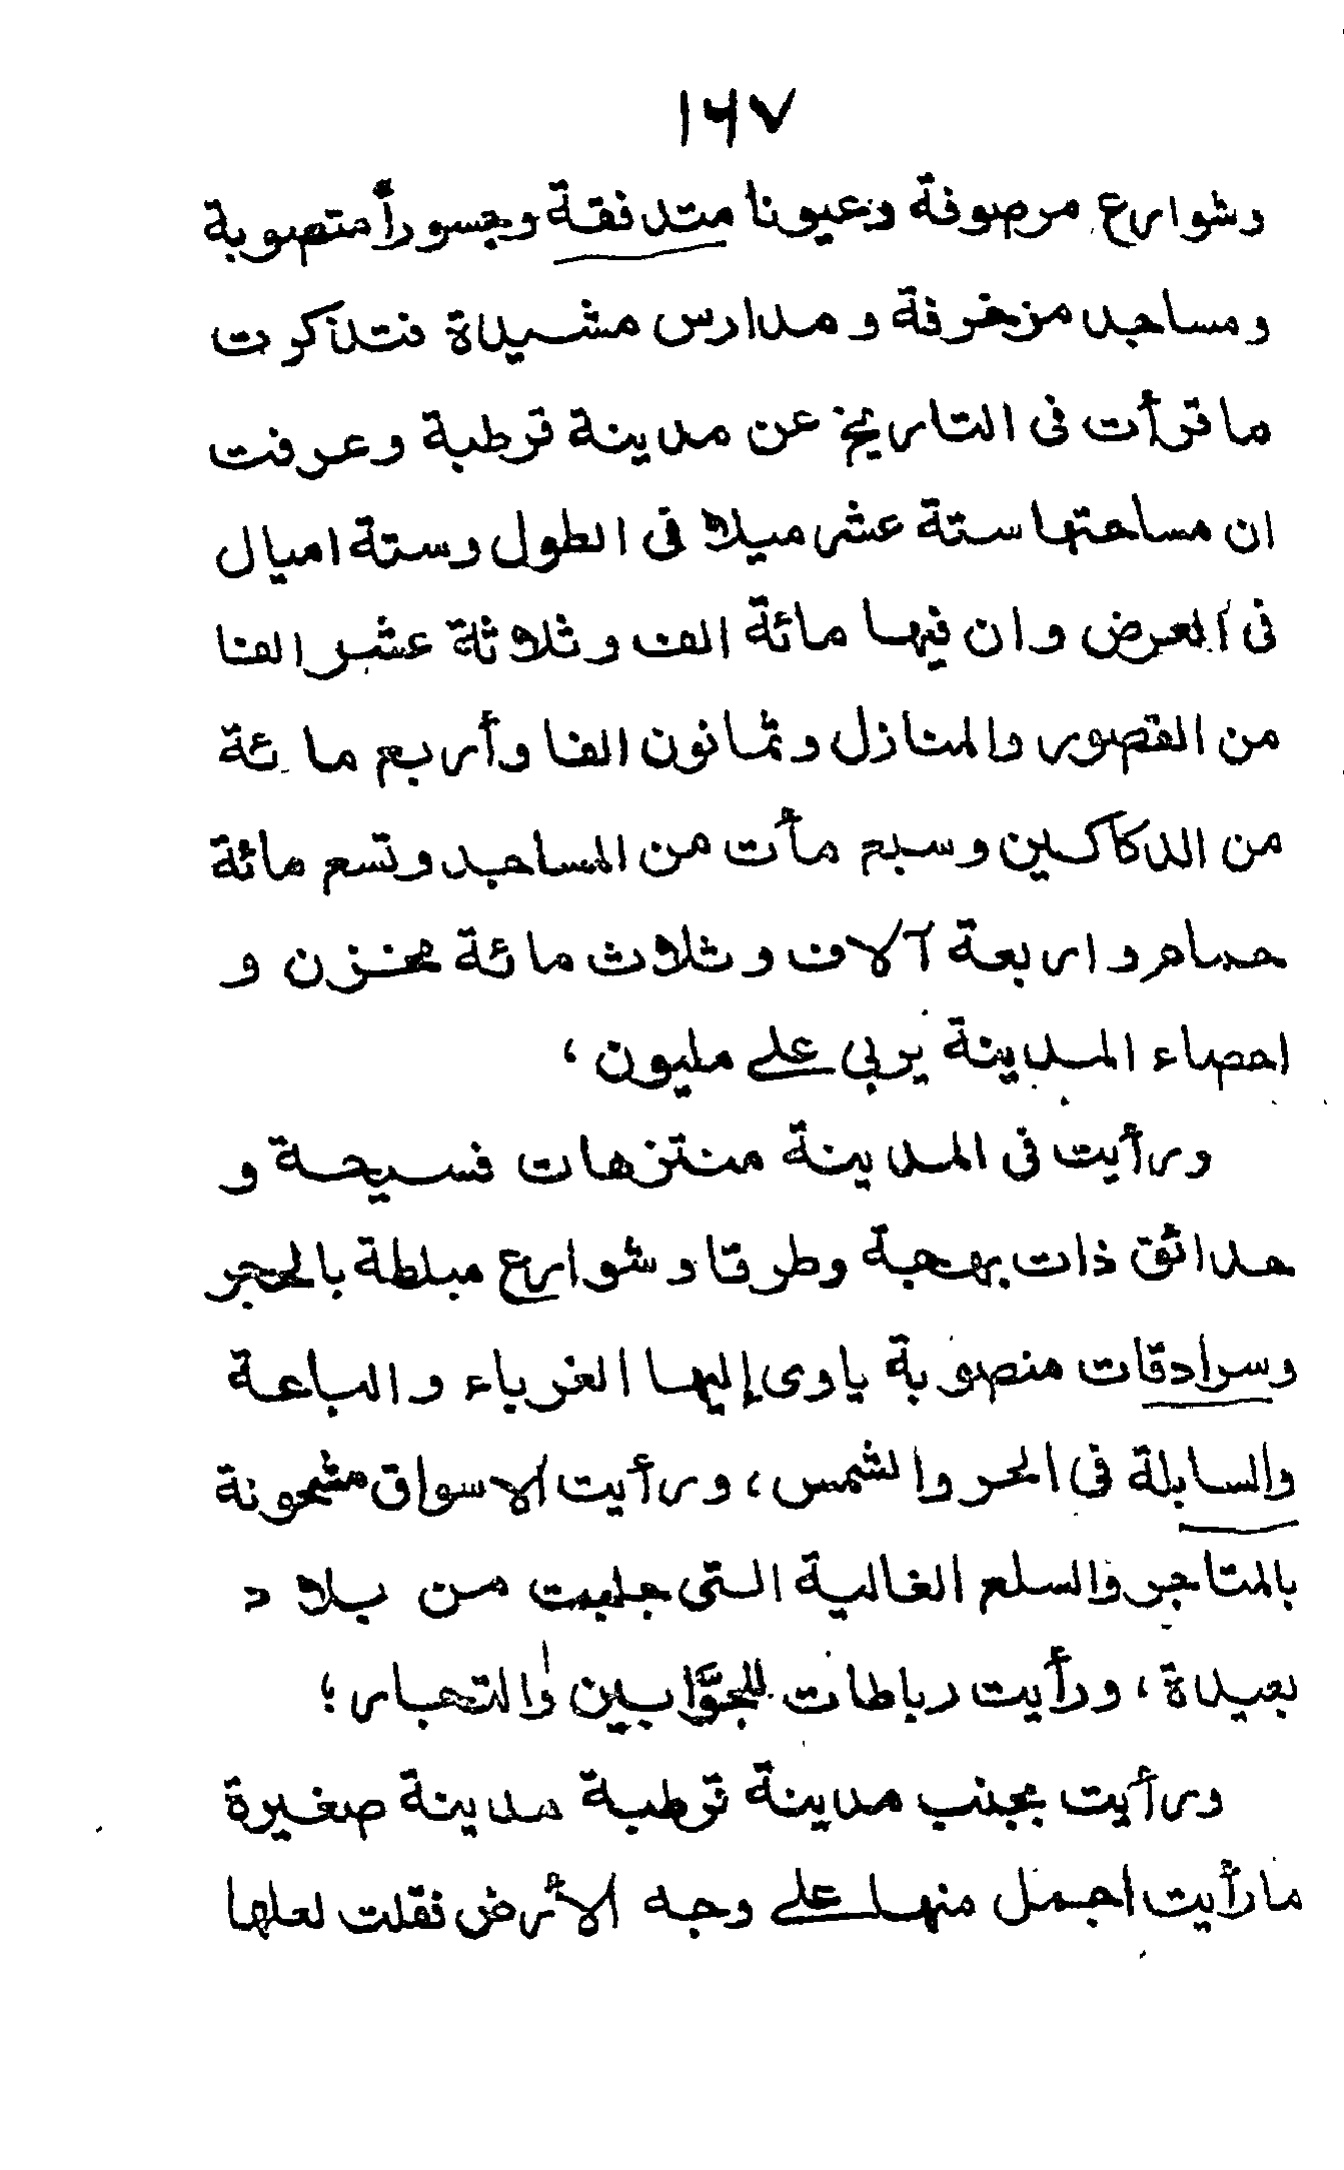 ١٦٧
وشوارع مرصوفة وعيونا متدفقة وجسوراً متصوبة
ومساجد مزخرفة ومدارس مشيدة فتذكرت
ما قرأت فى التاريخ عن مدينة قرطبة وعرفت
ان مساحتها ستة عشر ميلا فى الطول وستة اميال
فى العرض وان فيها مائة الف وثلاثة عشر الفا
من القصور والمنازل وثمانون الفا وأربع مائة
من الدكاكين وسبع مأت من المساجد وتسع مائة
حمام واربعة آلاف وثلاث مائة مخزن و
احصاء المدينة يربى على مليون ،
ورأيت فى المدينة منتزهات فسيحة و
حدائق ذات بهجة وطرقا وشوارع مبلطة بالحجر
وسرادقات منصوبة ياوى إليها الغرباء والباعة
والسابلة فى الحر والشمس ، ورأيت الاسواق مشحونة
بالمتاجر والسلع الغالية التى جلبت من بلاد
بعيدة ، ورأيت رباطات للجوَّابين والتجار ؛
ورأيت بجنب مدينة قرطبة مدينة صغيرة
ما رأيت اجمل منها على وجه الأرض فقلت لعلها